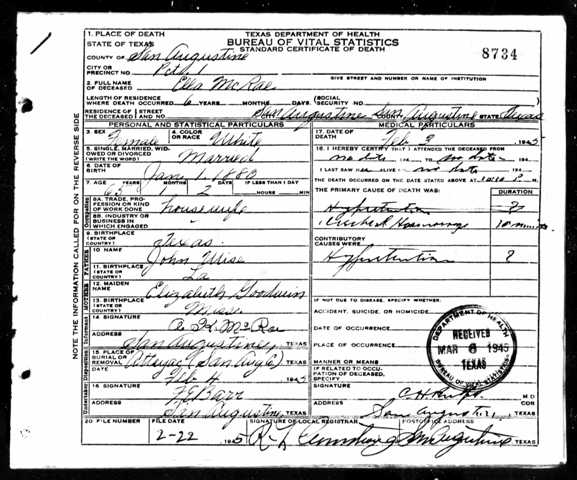 1. PLACE OF DEATH
STATE OF TEXAS
TEXAS DEPARTMENT OF HEALTH
BUREAU OF VITAL STATISTICS
STANDARD CERTIFICATE OF DEATH
8734
COUNTY OF San Augustine
CITY OR PRECINCT NO. Pct 1
GIVE STREET AND NUMBER OR NAME OF INSTITUTION
2. FULL NAME OF DECEASED Ella McRae
LENGTH OF RESIDENCE WHERE DEATH OCCURRED 6 YEARS MONTHS DAYS (SOCIAL SECURITY NO.
RESIDENCE OF THE DECEASED STREET San Augustine San Augustine STATE Texas
PERSONAL AND STATISTICAL PARTICULARS
MEDICAL PARTICULARS
3. SEX Female 4. COLOR OR RACE White
17. DATE OF DEATH Feb 1945
5. SINGLE, MARRIED, WIDOWED OR DIVORCED (WRITE THE WORD) Married
18. I HEREBY CERTIFY THAT I ATTENDED THE DECEASED FROM
no date 194 TO no date 194
6. DATE OF BIRTH Jan 1 1880
I LAST SAW H ALIVE no date 194
7. AGE YEARS MONTHS DAYS IF LESS THAN 1 DAY
2 HOURS MIN
THE DEATH OCCURRED ON THE DATE STATED ABOVE AT M.
8A. TRADE, PROFESSION OR KIND OF WORK DONE housewife
THE PRIMARY CAUSE OF DEATH WAS: DURATION
Hypertention ?
8B. INDUSTRY OR BUSINESS IN WHICH ENGAGED
Cerebral Hemorrage 10 minutes
9. BIRTHPLACE (STATE OR COUNTRY) Texas
CONTRIBUTORY CAUSES WERE:
FATHER
10 NAME John Wise
Hypertention ?
11. BIRTHPLACE (STATE OR COUNTRY) La
MOTHER
12. MAIDEN NAME Elizabeth Goodwin
13. BIRTHPLACE (STATE OR COUNTRY) Miss.
IF NOT DUE TO DISEASE, SPECIFY WHETHER:
ACCIDENT, SUICIDE, OR HOMICIDE
14 SIGNATURE McRae
DATE OF OCCURRENCE
ADDRESS San Augustine, TEXAS
PLACE OF OCCURRENCE
15. PLACE OF BURIAL OR REMOVAL Attoyac (San Aug) TEXAS
MANNER OR MEANS
DATE Feb 4 1945
IF RELATED TO OCCUPATION OF DECEASED, SPECIFY
16 SIGNATURE Barr
C H M D
COR
ADDRESS San Augustine, TEXAS
San Augustine, TEXAS
20 FILE NUMBER FILE DATE SIGNATURE OF LOCAL REGISTRAR POSTOFFICE ADDRESS
2-22 1945 San Augustine TEXAS
NOTE THE INFORMATION CALLED FOR ON THE REVERSE SIDE
DEPARTMENT OF HEALTH
RECEIVED
MAR 6 1945
TEXAS
BUREAU OF VITAL STATISTICS